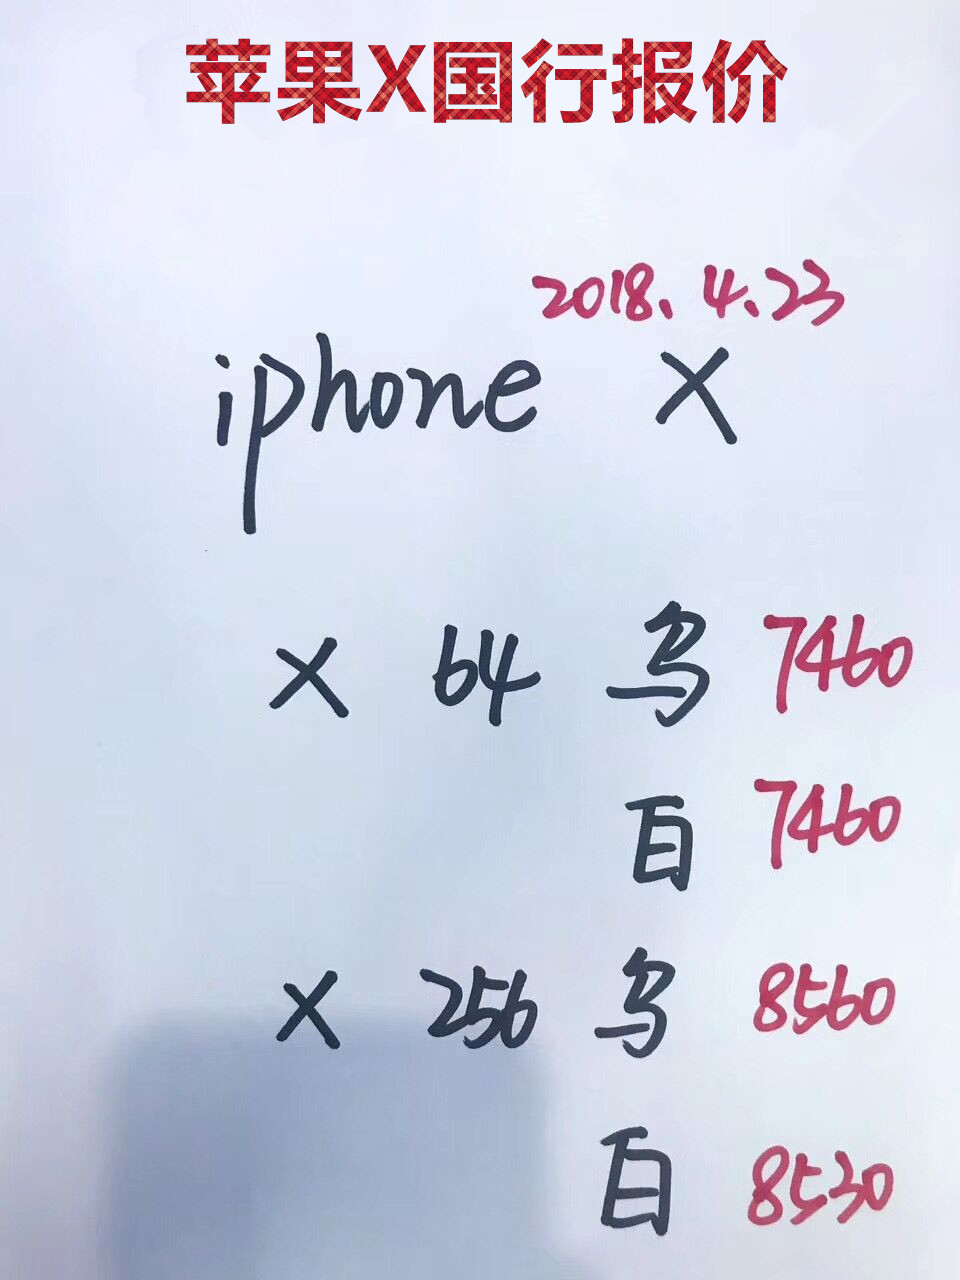 苹果X国行报价
2018.4.23
iphone X
X 64 乌 7460
白 7460
X 256 乌 8560
白 8530